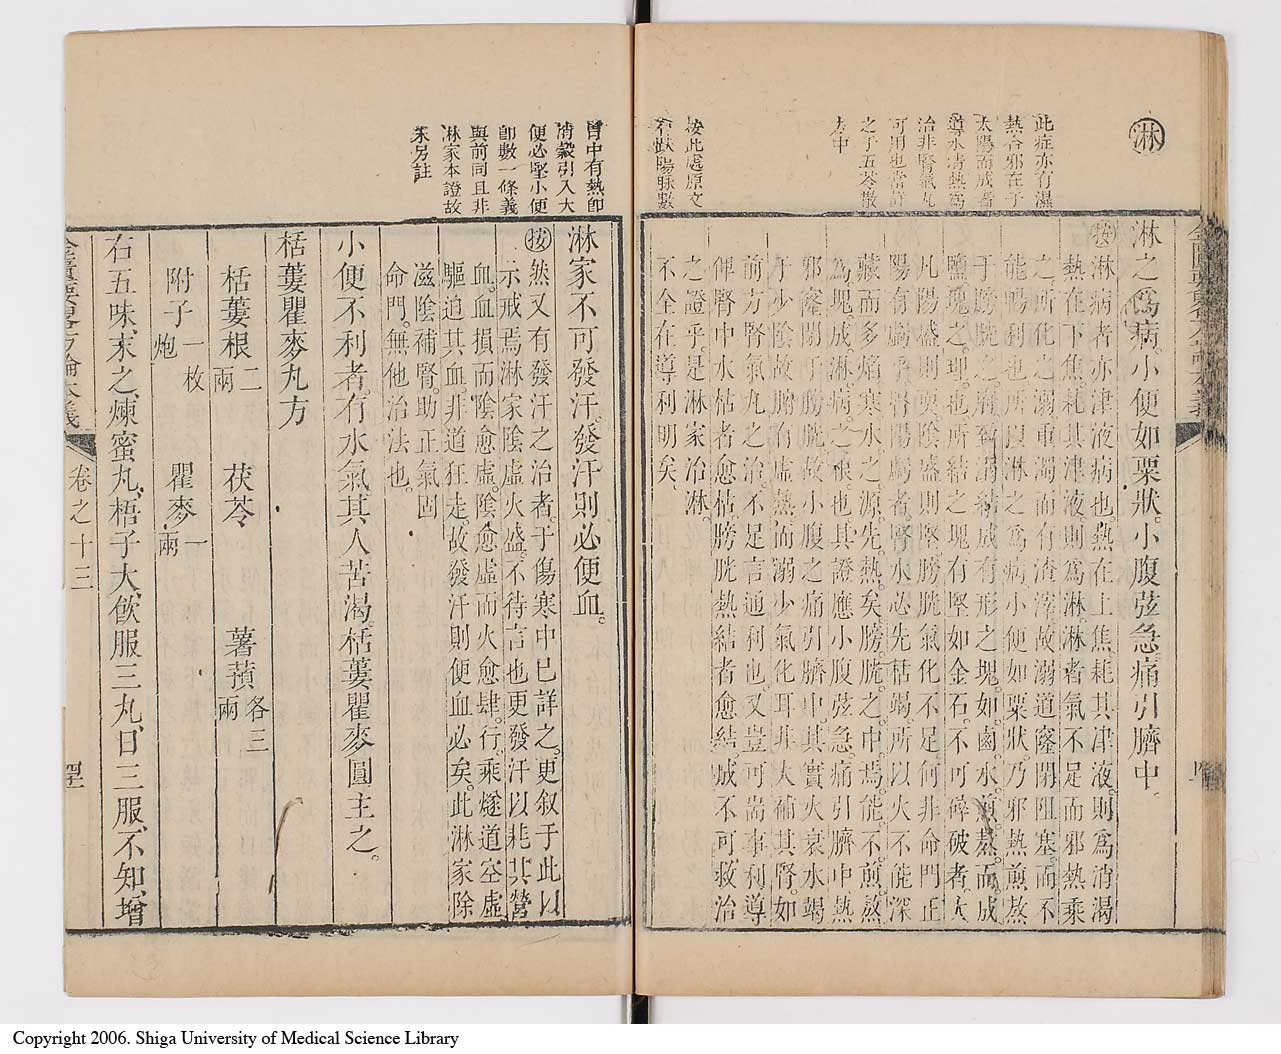 淋
此症亦有濕
熱合邪在于
太陽而成者
導水清熱爲
治非腎氣丸
可用也當詳
之于五苓散
方中
按此處原文
有趺陽脉數
淋之爲病。小便如粟狀。小腹弦急痛引臍中。
按淋病者亦津液病也。熱在上焦耗其津液。則爲消渴
熱在下焦。耗其津液。則爲淋。淋者氣不足而邪熱乘
之。所化之溺重濁而有渣滓。故溺道窒閉阻塞。而不
能暢利也。所以淋之爲病。小便如粟狀。乃邪熱煎熬
于膀胱之府。致溺結成有形之塊。如鹵水。煎熬。而成
鹽塊之理也。所結之塊有堅如金石。不可碎破者。大
凡陽盛則耎陰盛則堅。膀胱氣化不足。何非命門正
陽有虧乎。腎陽虧者。腎水必先枯竭。所以火不能深
藏。而多煏寒水之源。先。熱。矣。膀。胱。之。中。焉。能。不。煎。熬
爲。塊。成淋病。之根也。其證應小腹弦急。痛引臍中。熱
邪窒閉于膀胱。故小腹之痛引臍中。其實火衰水竭
于少陰。故腑有虛熱。而溺少氣化耳。非大補其腎。如
前方腎氣丸之治。不足言通利也。又豈可耑事利導
俾腎中水枯者愈枯。膀胱熱結者愈結。成不可救治
之證乎。是淋家治淋。
不全在導利明矣。
胃中有熱即
消穀引入大
便必堅小便
即數一條義
與前同且非
淋家本證故
未另註
淋家不可發汗。發汗則必便血。
按然又有發汗之治者。于傷寒中巳詳之。更叙于此以
示戒焉。淋家陰虛火盛。不待言也。更發汗以耗其營
血。血損而陰愈虛。陰愈虛而火愈肆。行。乘。燧道空虛
驅迫其血非道狂走。故發汗則便血必矣。此淋家除
滋陰補腎。助正氣固
命門。無他治法也。
小便不利者。有水氣其人苦渴。栝蔞瞿麥圓主之。
栝蔞瞿麥丸方
栝蔞根二兩 茯苓 薯蕷各三兩
附子一枚炮 瞿麥一兩
右五味、末之、煉蜜丸、梧子大、飲服三丸、日三服、不知、增
金匱要畧方論本義
卷之十三
Copyright 2006. Shiga University of Medical Science Library